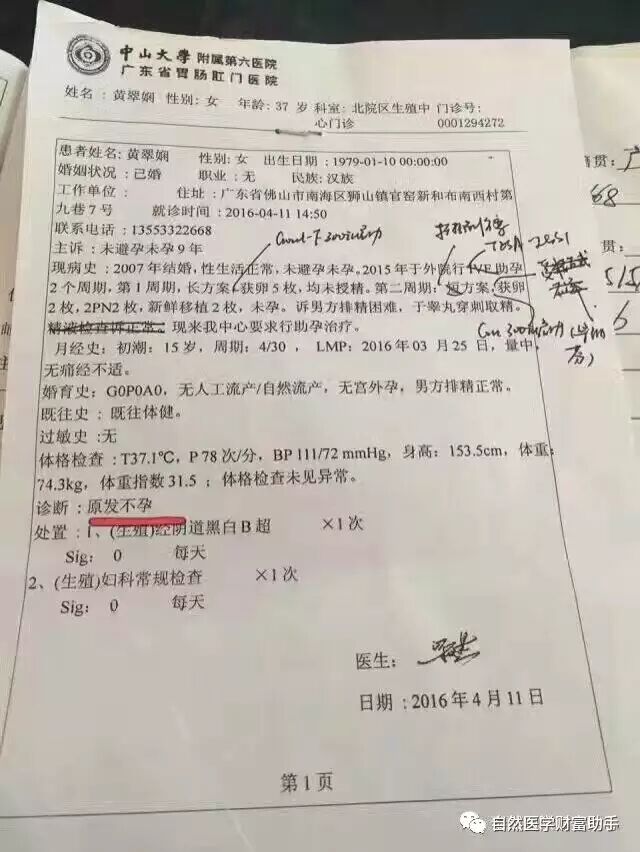 中山大学 附属第六医院
广东省胃肠肛门医院
姓名：黄翠娴 性别：女 年龄：37 岁 科室：北院区生殖中 门诊号：
心门诊 0001294272
患者姓名：黄翠娴 性别：女 出生日期：1979-01-10 00:00:00
婚姻状况：已婚 职业：无 民族：汉族
工作单位： 住址：广东省佛山市南海区狮山镇官窑新和布南西村第
九巷7号 就诊时间：2016-04-11 14:50
联系电话：13553322668
主诉：未避孕未孕9年
现病史：2007年结婚，性生活正常，未避孕未孕。2015年于外院行IVF助孕
2个周期，第1周期，长方案，获卵5枚，均未授精。第二周期：短方案，获卵
2枚，2PN2枚，新鲜移植2枚，未孕。诉男方排精困难，于睾丸穿刺取精。
精液检查诉正常。现来我中心要求行助孕治疗。
月经史：初潮：15岁，周期：4/30，LMP：2016年03月25日，量中，
无痛经不适。
婚育史：G0P0A0，无人工流产/自然流产，无宫外孕，男方排精正常。
既往史：既往体健。
过敏史：无
体格检查：T37.1℃，P 78次/分，BP 111/72 mmHg，身高：153.5cm，体重：
74.3kg，体重指数31.5；体格检查未见异常。
诊断：原发不孕
处置：1、(生殖)经阴道黑白B超 ×1次
Sig： 0 每天
2、(生殖)妇科常规检查 ×1次
Sig： 0 每天
医生：
日期：2016年4月11日
第1页
籍贯：广
68
贯：
515
6
自然医学财富助手